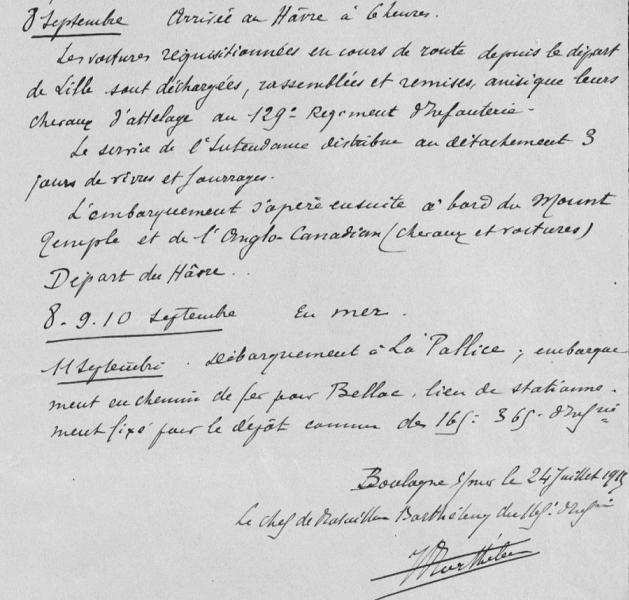 8 Septembre Arrivée au Hâvre à 6 heures.
Les voitures réquisitionnées en cours de route depuis le départ
de Lille sont déchargées, rassemblées et remises, ainsique leurs
chevaux d'attelage au 129e Régiment d'Infanterie -
Le service de l'Intendance distribue au détachement 3
jours de vivres et fourrages.
L'embarquement s'opère ensuite à bord du Mount
Temple et de l'Anglo-Canadian (chevaux et voitures)
Départ du Hâvre..
8-9-10 Septembre En mer.
11 Septembre. Débarquement à La Pallice; embarque
ment en chemin de fer pour Bellac, lieu de stationne-
ment fixé pour le dépôt commun des 165e 365e d'Infrie
Boulogne s/mer le 24 Juillet
Le Chef de Bataillon Barthélemy du 165e d'Infie
Barthélemy